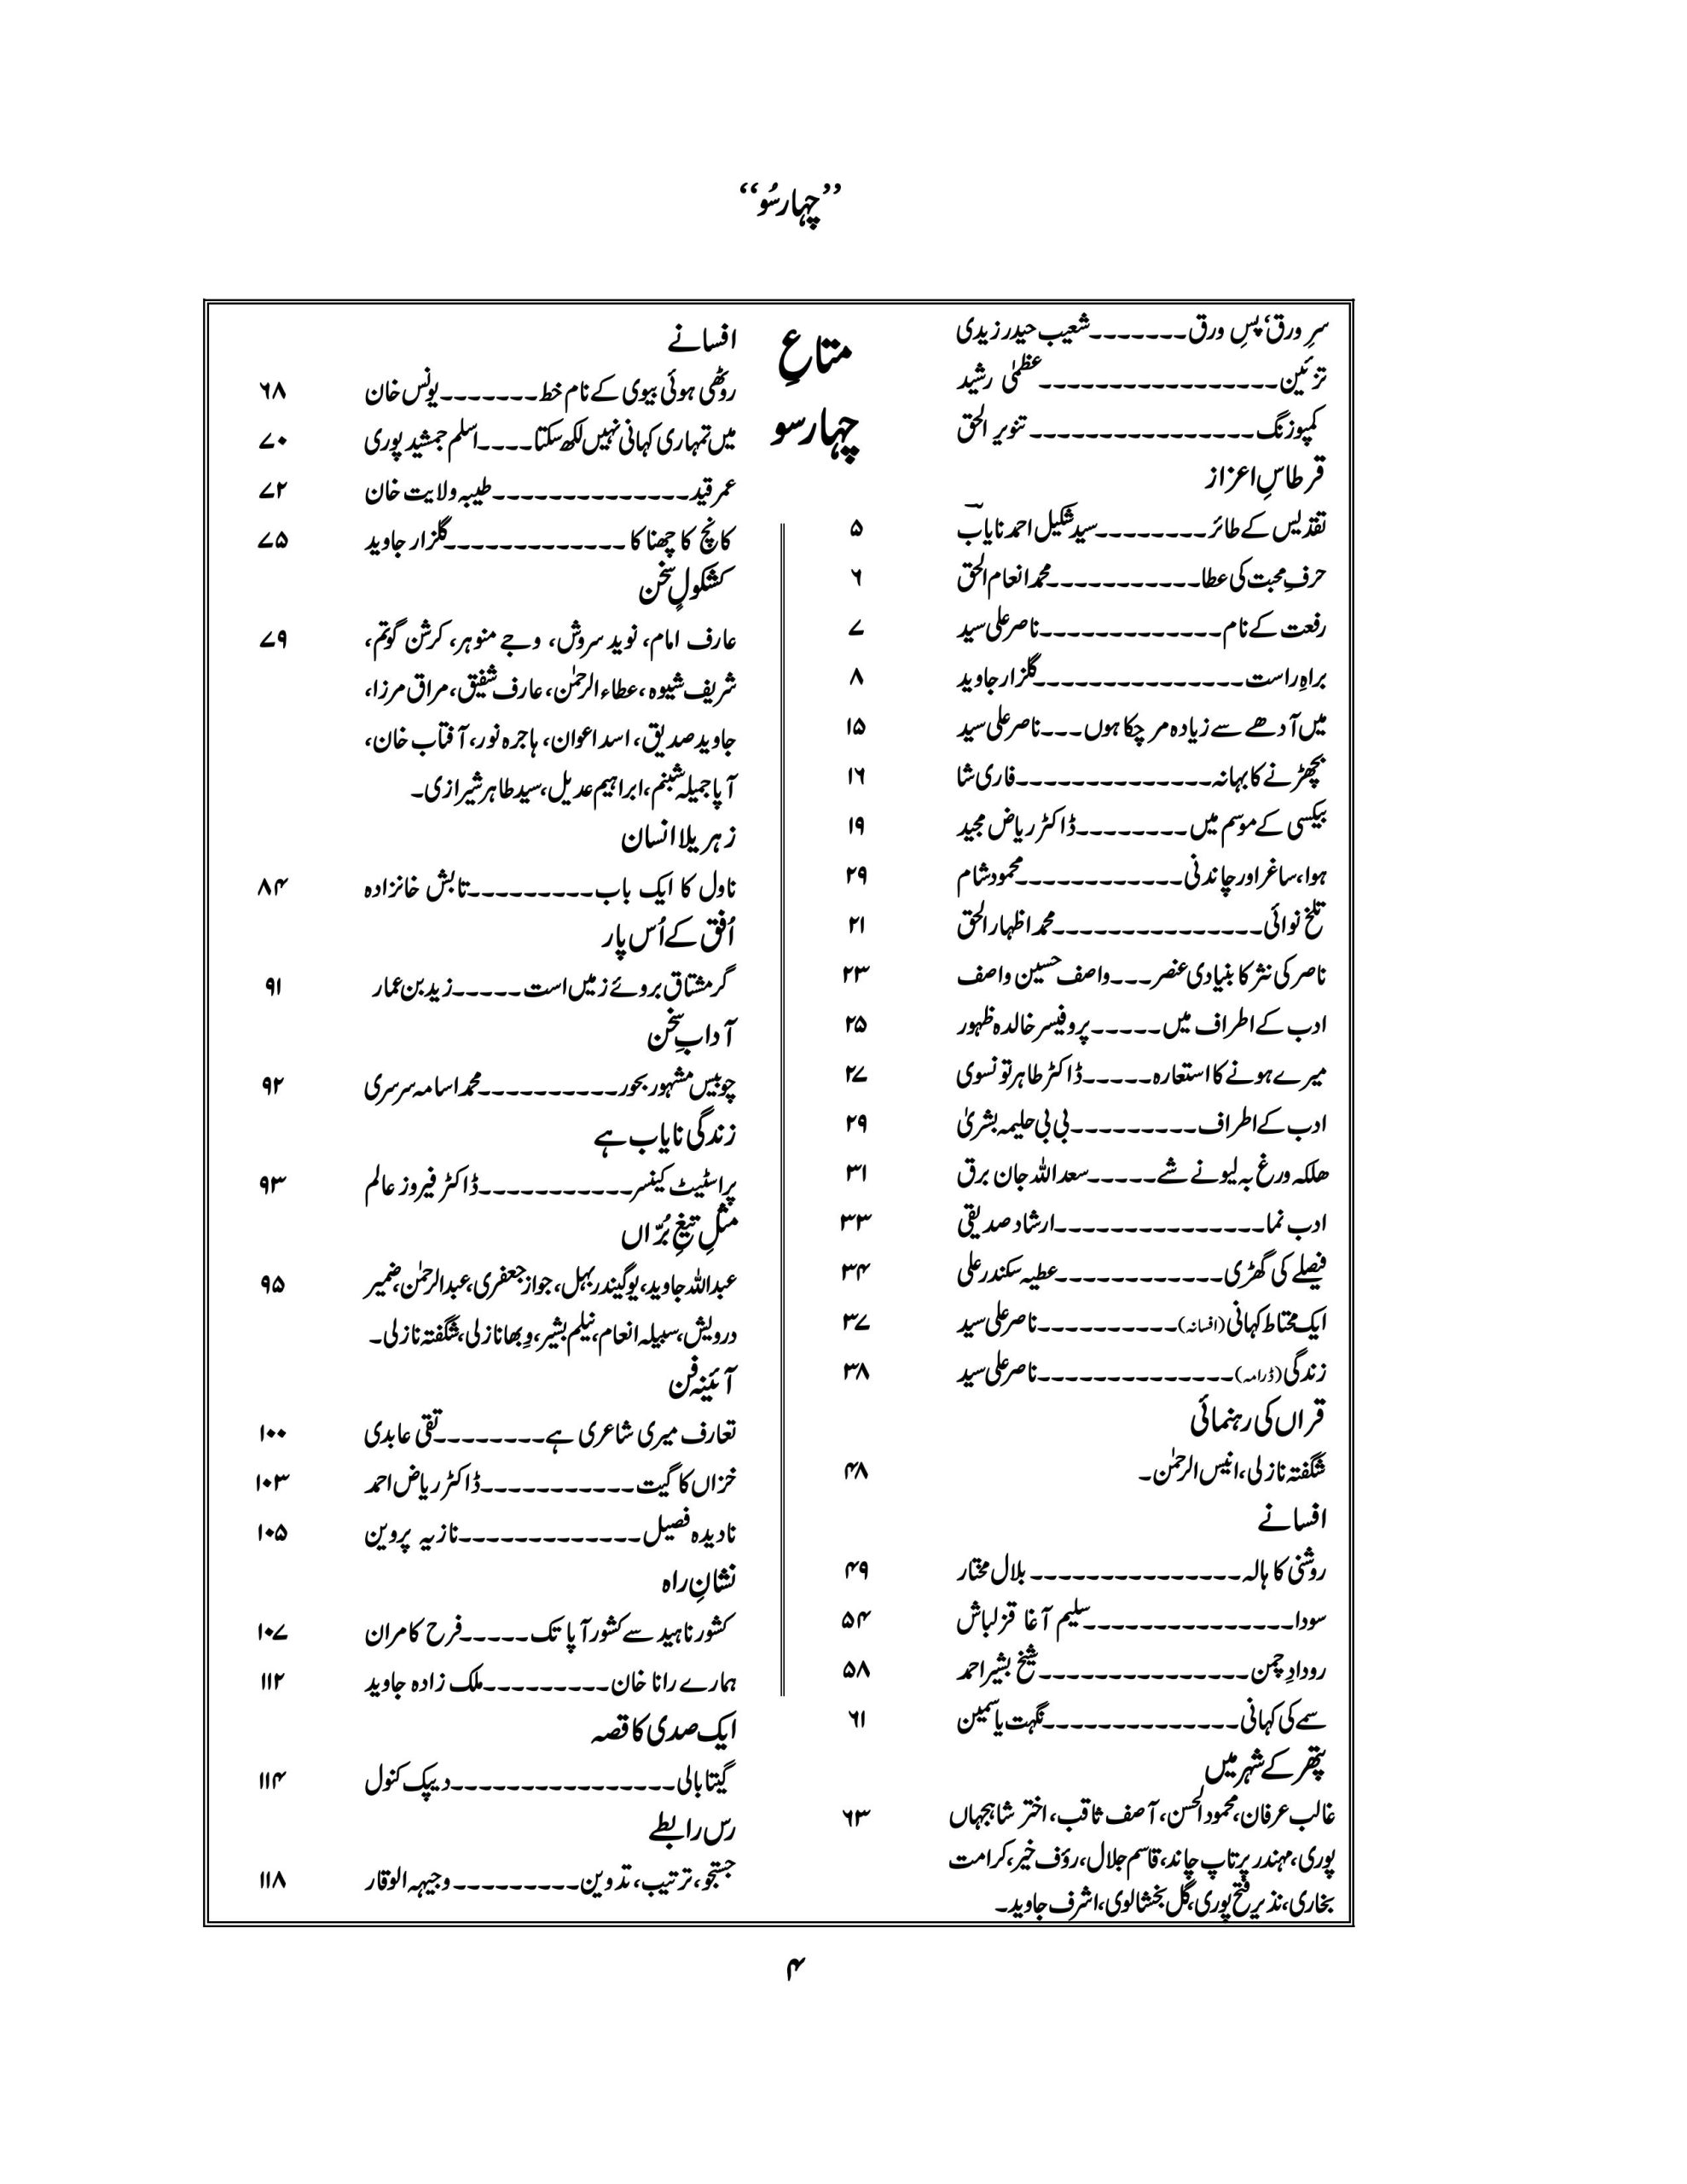 ”چہارسُو“
متاعِ
چہارسو
سرِ ورق، پسِ ورق-------شعیب حیدر زیدی
تزئین-----------------عظمٰی رشید
کمپوزنگ---------------- تنویر الحق
قرطاسِ اعزاز
تقدیس کے طائر--------سید شکیل احمد نایاب ۵
حرفِ محبت کی عطا-----------محمد انعام الحق ۶
رفعت کے نام-------------ناصر علی سید ۷
براہِ راست---------------گلزار جاوید ۸
میں آدھے سے زیادہ مر چکا ہوں---ناصر علی سید ۱۵
بچھڑنے کا بہانہ--------------فاری شا ۱۶
بیکسی کے موسم میں--------ڈاکٹر ریاض مجید ۱۹
ہوا، ساغر اور چاندنی------------محمود شام ۲۹
تلخ نوائی---------------محمد اظہار الحق ۲۱
ناصر کی نثر کا بنیادی عنصر---واصف حسین واصف ۲۳
ادب کے اطراف میں-----پروفیسر خالدہ ظہور ۲۵
میرے ہونے کا استعارہ-----ڈاکٹر طاہر تونسوی ۲۷
ادب کے اطراف---------بی بی حلیمہ بشریٰ ۲۹
ھلکہ ورغ بہ لیونے شے-----سعد اللہ جان برق ۳۱
ادب نما---------------ارشاد صدیقی ۳۳
فیصلے کی گھڑی------------عطیہ سکندر علی ۳۴
ایک محتاط کہانی (افسانہ)----------ناصر علی سید ۳۷
زندگی (ڈرامہ)--------------ناصر علی سید ۳۸
قراں کی رہنمائی
شگفتہ نازلی، انیس الرحمٰن۔ ۴۸
افسانے
روشنی کا ہالہ--------------- بلال مختار ۴۹
سودا---------------سلیم آغا قزلباش ۵۴
رودادِ چمن---------------شیخ بشیر احمد ۵۸
سمے کی کہانی--------------نگہت یاسمین ۶۱
پتھر کے شہر میں
غالب عرفان، محمود الحسن، آصف ثاقب، اختر شاہجہاں ۶۳
پوری، مہندر پرتاپ چاند، قاسم جلال، رؤف خیر، کرامت
بخاری، نذیر فتح پوری، گل بخشالوی، اشرف جاوید۔
افسانے
روٹھی ہوئی بیوی کے نام خط-------یونس خان ۶۸
میں تمہاری کہانی نہیں لکھ سکتا----اسلم جمشید پوری ۷۰
عمر قید--------------طیبہ ولایت خان ۷۲
کانچ کا چھنا کا-------------گلزار جاوید ۷۵
کشکولِ سخن
عارف امام، نوید سروش، وجے منوہر، کرشن گوتم، ۷۹
شریف شیوہ، عطاء الرحمٰن، عارف شفیق، مراق مرزا،
جاوید صدیق، اسد اعوان، ہاجرہ نور، آفتاب خان،
آپا جمیلہ شبنم، ابراہیم عدیل، سید طاہر شیرازی۔
زہریلا انسان
ناول کا ایک باب---------تابش خانزادہ ۸۴
اُفق کے اُس پار
گر مشتاق بروئے زمیں است-----زید بن عمار ۹۱
آدابِ سخن
چوبیس مشہور بحور----------محمد اسامہ سرسری ۹۲
زندگی نایاب ہے
پراسٹیٹ کینسر-----------ڈاکٹر فیروز عالم ۹۳
مثلِ تیغِ بُرّاں
عبداللہ جاوید، یوگیندر بہل، جواز جعفری، عبدالرحمٰن، ضمیر ۹۵
درویش، سبیلہ انعام، نیلم بشیر، وِبھا نازلی، شگفتہ نازلی۔
آئینۂ فن
تعارف میری شاعری ہے--------تقی عابدی ۱۰۰
خزاں کا گیت-----------ڈاکٹر ریاض احمد ۱۰۳
نادیدہ فصیل-------------نازیہ پروین ۱۰۵
نشانِ راہ
کشور ناہید سے کشور آپا تک-----فرح کامران ۱۰۷
ہمارے رانا خان---------ملک زادہ جاوید ۱۱۲
ایک صدی کا قصہ
گیتا بالی----------------دیپک کنول ۱۱۴
رس رابطے
جستجو، ترتیب، تدوین---------وجیہہ الوقار ۱۱۸
۴